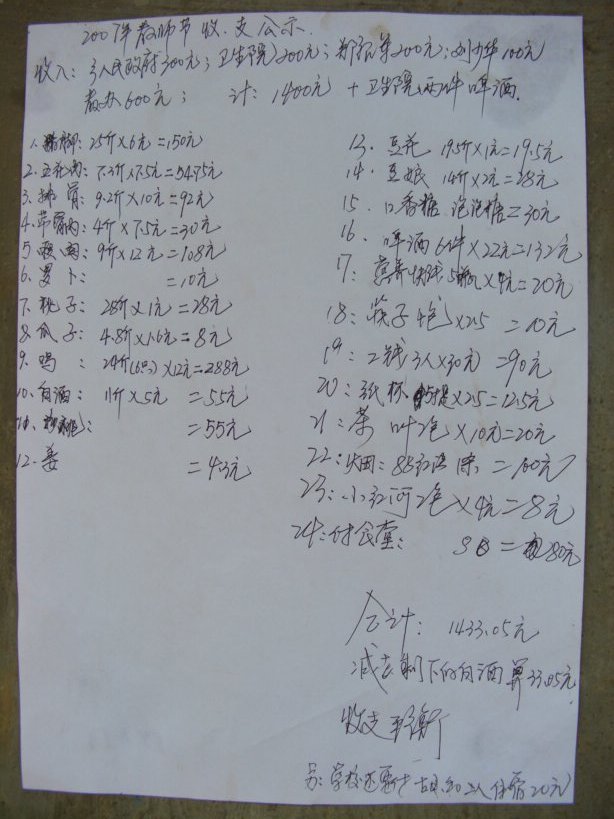 2007年教师节收.支公示.
收入: 乡人民政府300元; 卫生院200元; 200元; 100元
教办600元; 计: 1400元 + 卫生院两件啤酒.
1. 猪脚: 25斤×6元=150元
2. 五花肉: 7.3斤×7.5元=54.75元
3. 排骨: 9.2斤×10元=92元
4. 带骨肉: 4斤×7.5元=30元
5 肉: 9斤×12元=108元
6. 罗卜: =10元
7. 桃子: 28斤×1元=28元
8. 瓜子: 4.8斤×1.6元=8元
9. 鸡: 24斤(6只)×12元=288元
10. 白酒: 11斤×5元 =55元
11. : =55元
12. 姜 =4.3元
13. 豆花 19.5斤×1元=19.5元
14. 豆 14斤×2元=28元
15. 口香糖 泡泡糖=30元
16. 啤酒6件×22元=132元
17: 营养快线 5瓶×4元=20元
18: 筷子 4包×2.5 =10元
19: 工钱3人×30元 =90元
20: 纸杯 5提×2.5=12.5元
21: 茶叶2包×10元=20元
22: 烟: 88红河 1条 =100元
23: 小红河2包×4元=8元
24: 付食堂: =80元
合计: 1433.05元
减去剩下的白酒算33.05元.
收支平衡
另: 学校还 二人住宿20元